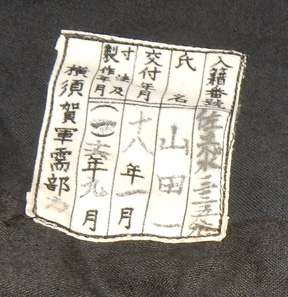 入籍番號
氏名 山田一
交付年月 十八年一月
寸法及製作年月 (一)十七年九月
横須賀軍需部